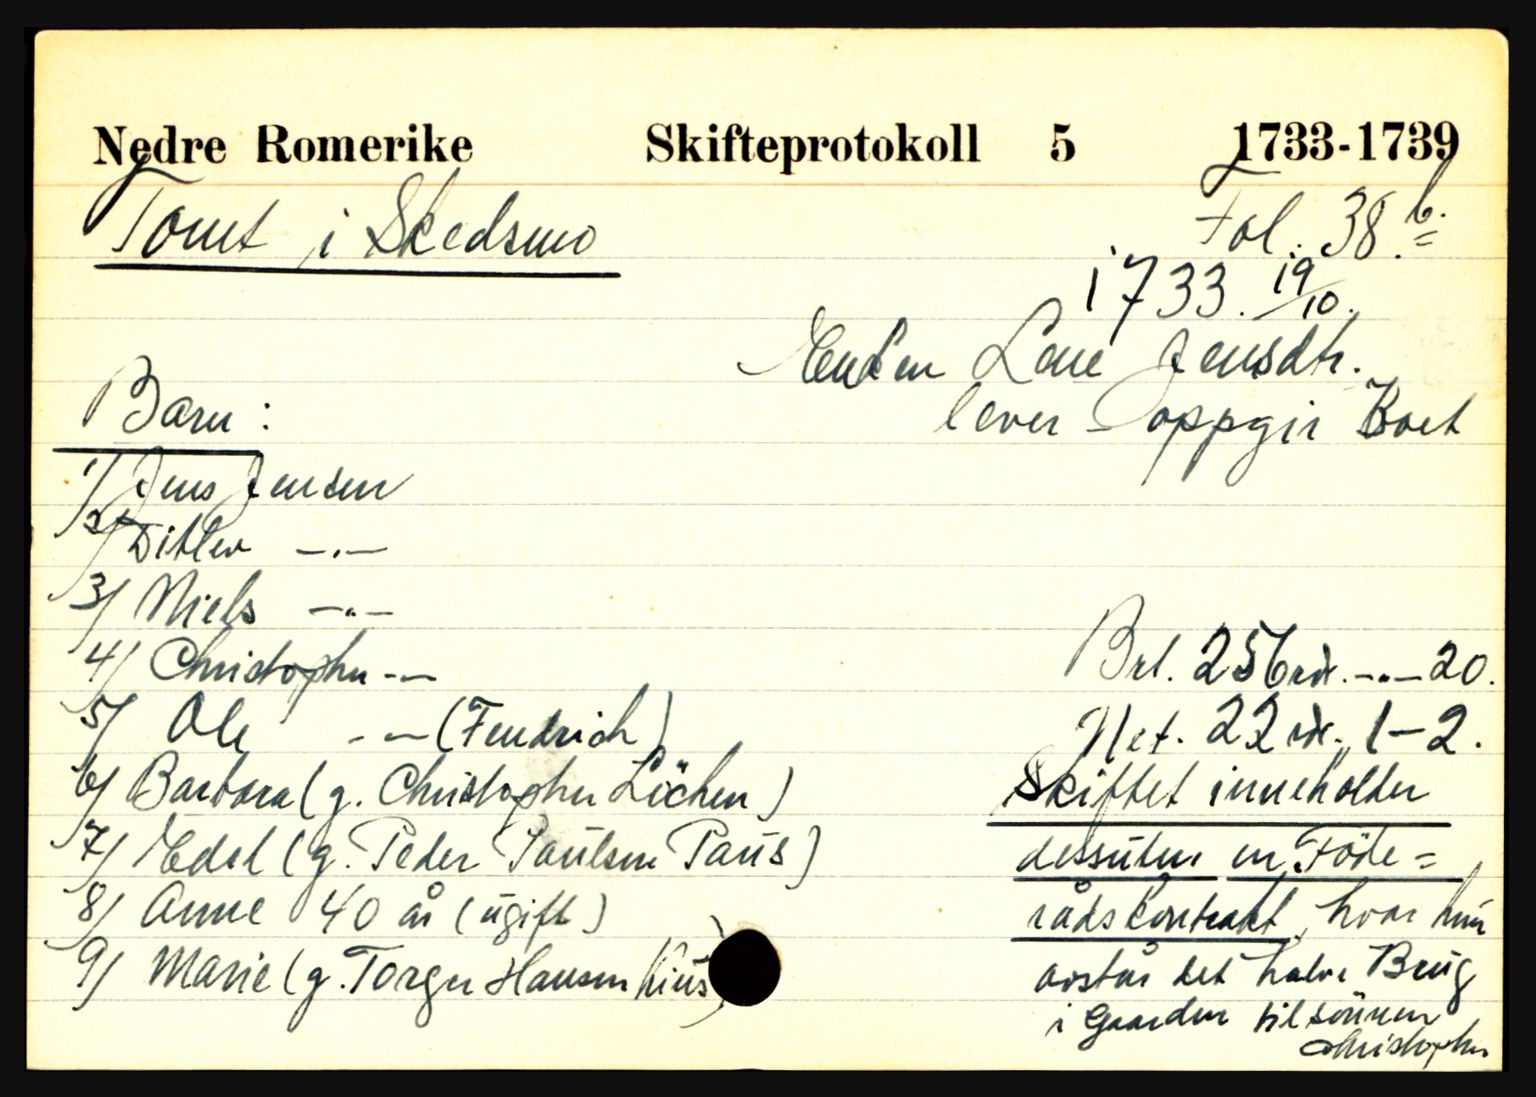 Nedre Romerike Skifteprotokoll 5 1733-1739
Tomt i Skedsmo
Fol. 38 b.
1733. 19/10.
Enken Lene Jensdtr.
lever oppgir Boet
Barn:
1/ Jens Jensen
2/ Ditlev -"-
3/ Niels -"-
4/ Christopher -"-
5/ Ole -"- (Fendrich)
6/ Barbara (g. Christopher Löchen)
7/ Edel (g. Peder Paulsen Paus)
8/ Anne 40 år (ugift)
9/ Marie (g. Torger Hansen Kius)
Brt. 256 rdr. -"- 20.
Net. 22 rdr. 1-2.
Skiftet inneholder
dessuten en Föde=
rådskontrakt, hvor hun
avstår det halve Brug
i Gaarden til sönnen
Christopher